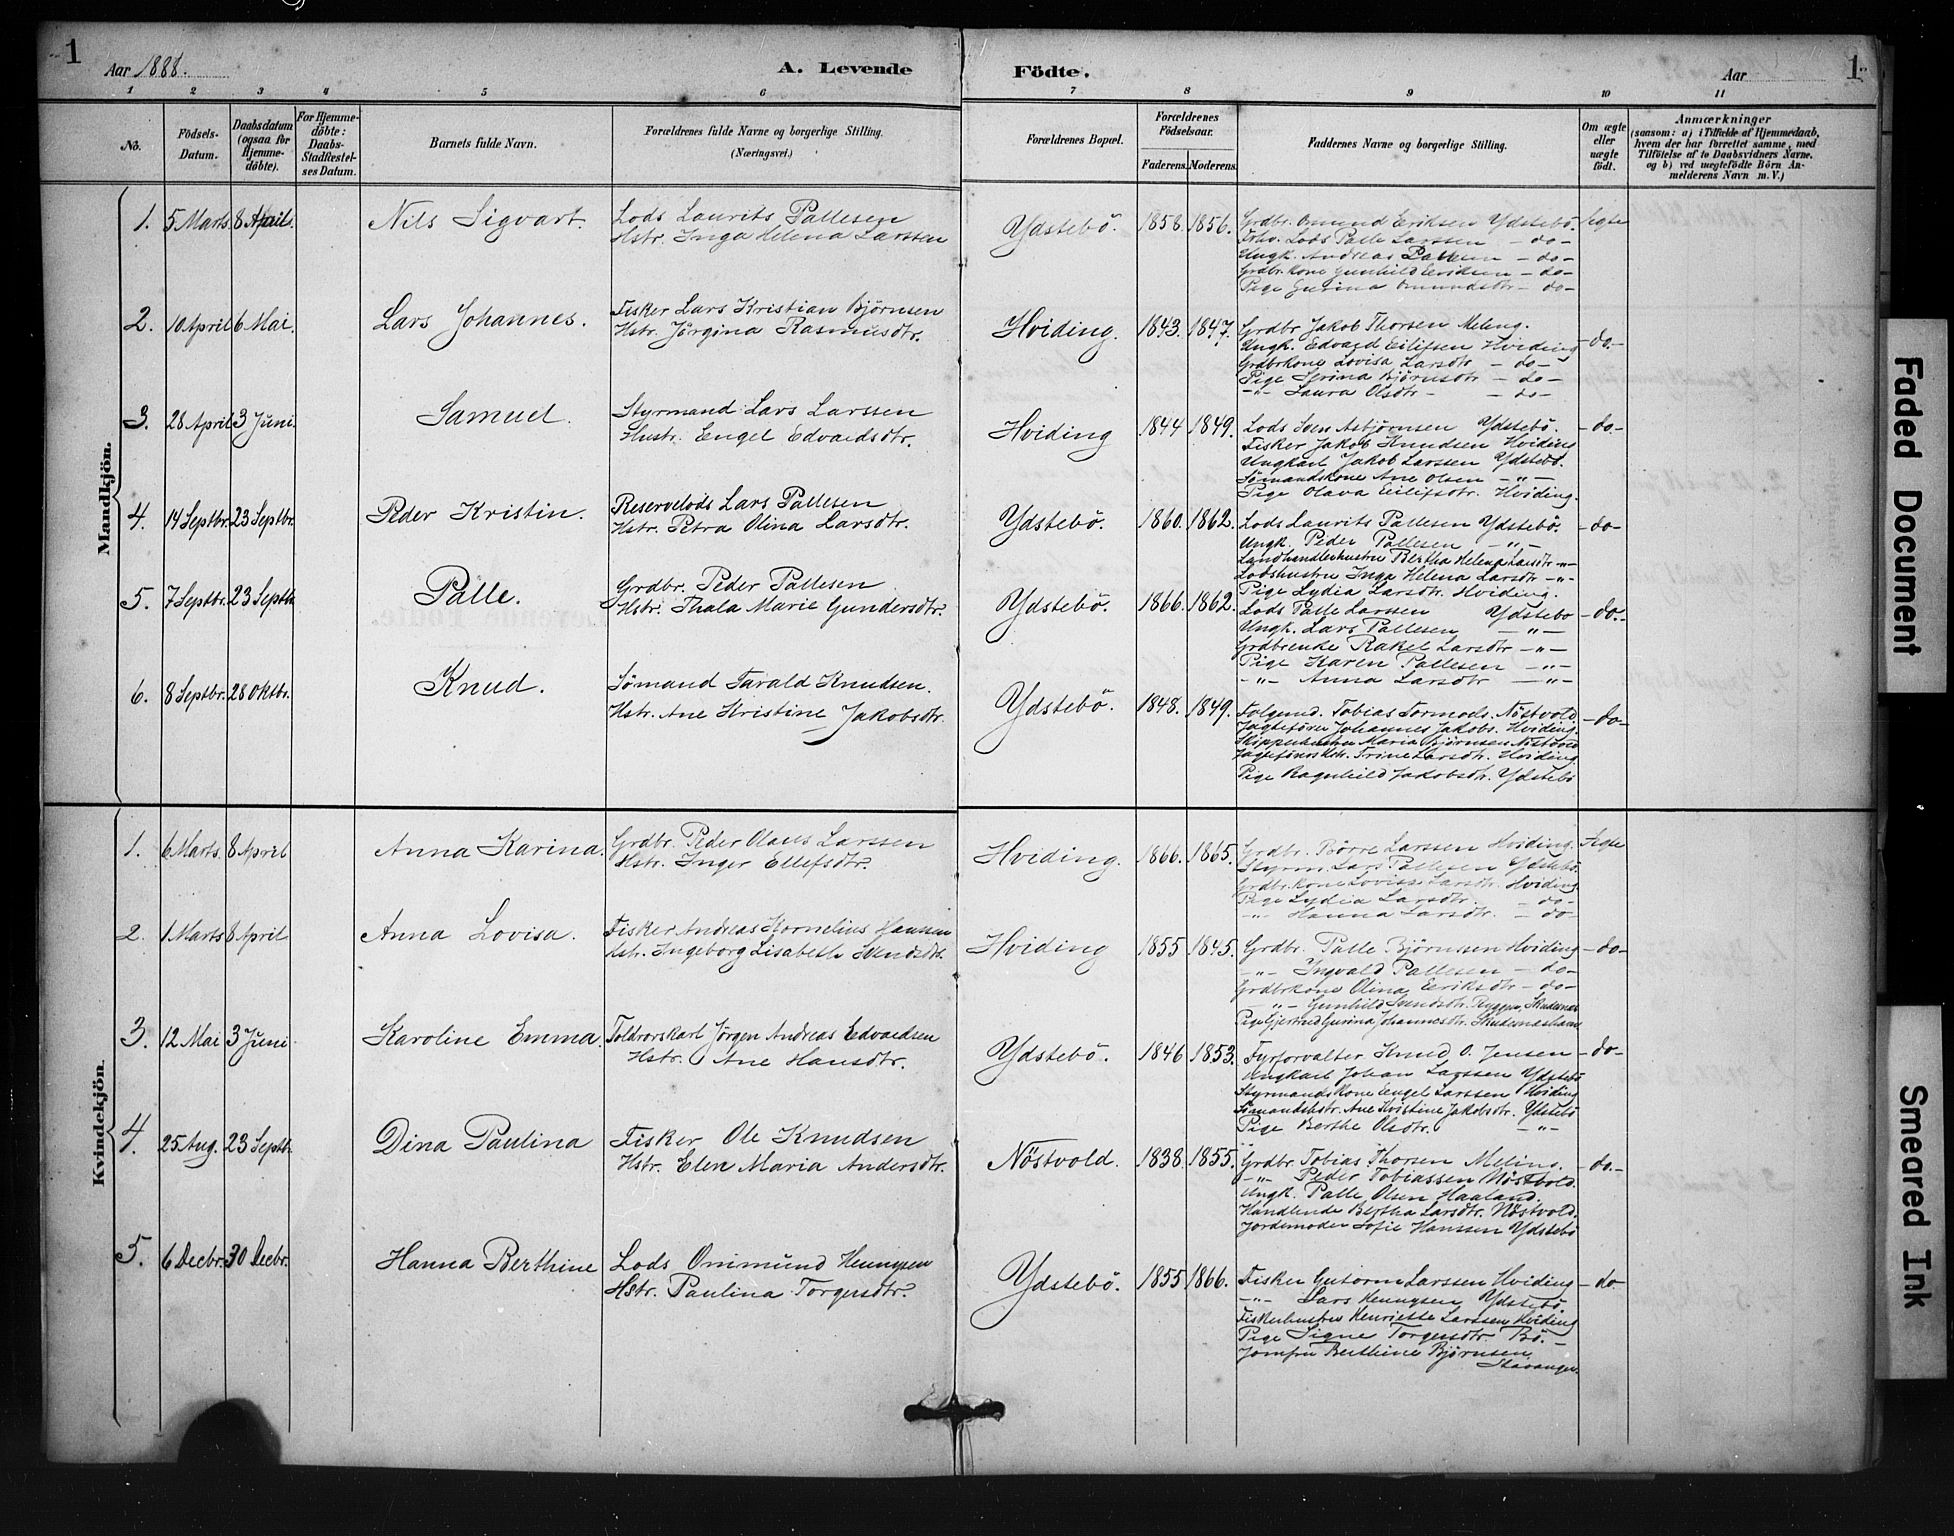 1
Aar 1888.
A. Levende
Födte.
Aar
1
1 2 3 4 5 6 7 8 9 10 11
No.
Födsels-Datum.
Daabsdatum (ogsaa for Hjemme-döbte).
For Hjemme-döbte: Daabs-Stadfæstel-ses Datum.
Barnets fulde Navn.
Forældrenes fulde Navne og borgerlige Stilling. (Næringsvei.)
Forældrenes Bopæl.
Forældrenes Födselsaar.
Faderens. Moderens.
Faddernes Navne og borgerlige Stilling.
Om ægte eller uægte födt.
Anmærkninger
(saasom: a) i Tilfælde af Hjemmedaab,
hvem der har forrettet samme, med
Tilföielse af to Daabsvidners Navne.
og b) ved uægtefödte Börn An-
melderens Navn m. V.)
Mandkjön.
1. 5 Marts. 8 April. Nils Sigvart. Lods Laurits Pallesen
Hstr. Inga Helena Larssen
Ydstebö. 1858. 1856. Grdbr. Omund Eriksen Ydstebö. Ægte
Lods Palle Larssen - do -
Ungk. Andreas Pallesen - do -
Grdbr.kone Gunhild Eeriksen - do -
Pige Gurina Omundsdtr - do -
2. 10 April 6 Mai. Lars Johannes. Fisker Lars Kristian Björnsen
Hstr. Jörgina Rasmusdtr.
Hviding. 1843. 1847. Grdbr Jakob Thorsen Meling. - do. -
Ungk. Edvard Eilifsen Hviding
Grdbrkone Lovisa Larsdtr - do -
Pige Serina Björnsdtr - do -
- " - Laura Olsdtr - - do -
3. 28 April 3 Juni. Samuel. Styrmand Lars Larssen
Hustr. Engel Edvardsdtr.
Hviding 1844 1849. Lods Sven Asbjörnsen Ydstebö. - do. -
Fisker Jakob Knudsen Hviding
Ungkarl Jakob Larssen Ydstebö.
Sömandskone Ane Olsen - " -
Pige Olava Eilifsdtr. Hviding.
4. 14 Septbr. 23 Septbr. Peder Kristin. Reservelods Lars Pallesen
Hstr. Petra Olina Larsdtr.
Ydstebö. 1860. 1862. Lods Laurits Pallesen Ydstebö. - do -
Ungk. Peder Pallesen - " -
Landhandlerhustru Bertha Helena Larsdtr - " -
Lodshustru Inga Helena Larsdtr - " -
Pige Lydia Larsdtr. Hviding.
5. 7 Septbr. 23 Septbr Palle. Grdbr. Peder Pallesen
Hstr. Thala Marie Gundersdtr.
Ydstebö. 1866. 1862. Lods Palle Larssen Ydstebö - do. -
Ungk. Lars Pallesen - " -
Grdbrenke Rakel Larsdtr - " -
Pige Karen Pallesen - " -
- " - Anna Larsdtr - " -
6. 8 Septbr. 28 Oktbr. Knud. Sömand Tarald Knudsen.
Hstr. Ane Kristine Jakobsdtr.
Ydstebö. 1848. 1849. Tobias Tormods. Nöstvold. - do -
Jagtefören Johannes Jakobs. Hviding.
Skipperhustru Maria Björnsen Nöstvold
Jagteförers Hstr. Trine Larsdtr. Hviding.
Pige Ragnhild Jakobsdtr. Ydstebö
Kvindekjön.
1. 6 Marts. 8 April Anna Karina. Grdbr. Peder Olaus Larssen
Hstr. Inger Ellefsdtr.
Hviding. 1866. 1865. Grdbr. Börre Larssen Hviding. Ægte
Styrm. Lars Pallesen Ydstebö.
Grdbr.kone Lovise Larsdtr. Hviding.
Pige Lydia Larsdtr. - do -
- " - Hanna Larsdtr. - do -
2. 1 Marts 8 April Anna Lovisa. Fisker Andreas Kornelius Hansen
Hstr. Ingeborg Lisabeth Svendsdtr.
Hviding 1855 1845. Grdbr. Palle Björnsen Hviding - do -
- " - Ingvald Pallesen - do -
Grdbrkone Olina Eeriksdtr - do -
- " - Gunhild Svendsdtr. Skudenæs
Pige Gjertrud Gurina Johannesdtr. Skudenæshavn
3. 12 Mai 3 Juni Karoline Emma. Toldrorskarl Jörgen Andreas Edvardsen
Hstr. Ane Hansdtr.
Ydstebö. 1846 1853. Fyrforvalter Knud O. Jensen - do -
Ungkarl Johan Larssen Ydstebö
Styrmandskone Engel Larssen Hviding
Sömandshstr. Ane Kristine Jakobsdtr. Ydstebö
Pige Berthe Olsdtr. - " -
4. 25 Aug. 23 Septbr. Dina Paulina Fisker Ole Knudsen
Hstr. Elen Maria Andersdtr.
Nöstvold. 1838. 1855. Grdbr. Tobias Thorsen Meling. - do. -
- " - Peder Tobiassen Nöstvold.
Ungk. Palle Olsen Haaland.
Handlende Bertha Larsdtr. Nöstvold.
Jordemoder Sofie Hanssen Ydstebö
5. 6 Decbr. 30 Decbr. Hanna Berthine Lods Ommund Henningsen
Hstr. Paulina Torgersdtr.
Ydstebö. 1855 1866. Fisker Gutorm Larssen Hviding - do -
- " - Lars Henningsen Ydstebö.
Fiskerhustru Henriette Larssen Hviding
Pige Signe Torgersdtr. Bö. -
Jomfru Berthine Björnsen.
Stavanger.
Faded Document
Smeared Ink